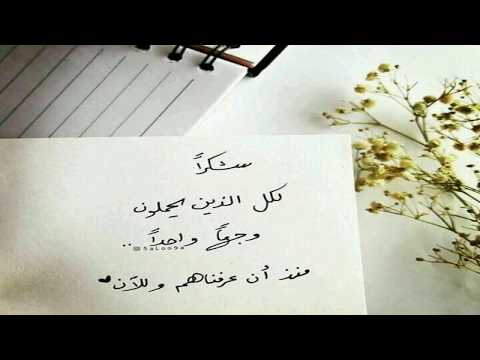 شكراً
لكل الذين يحملون
وجهاً واحداً ..
@5aloo9a
منذ أن عرفناهم وللآن